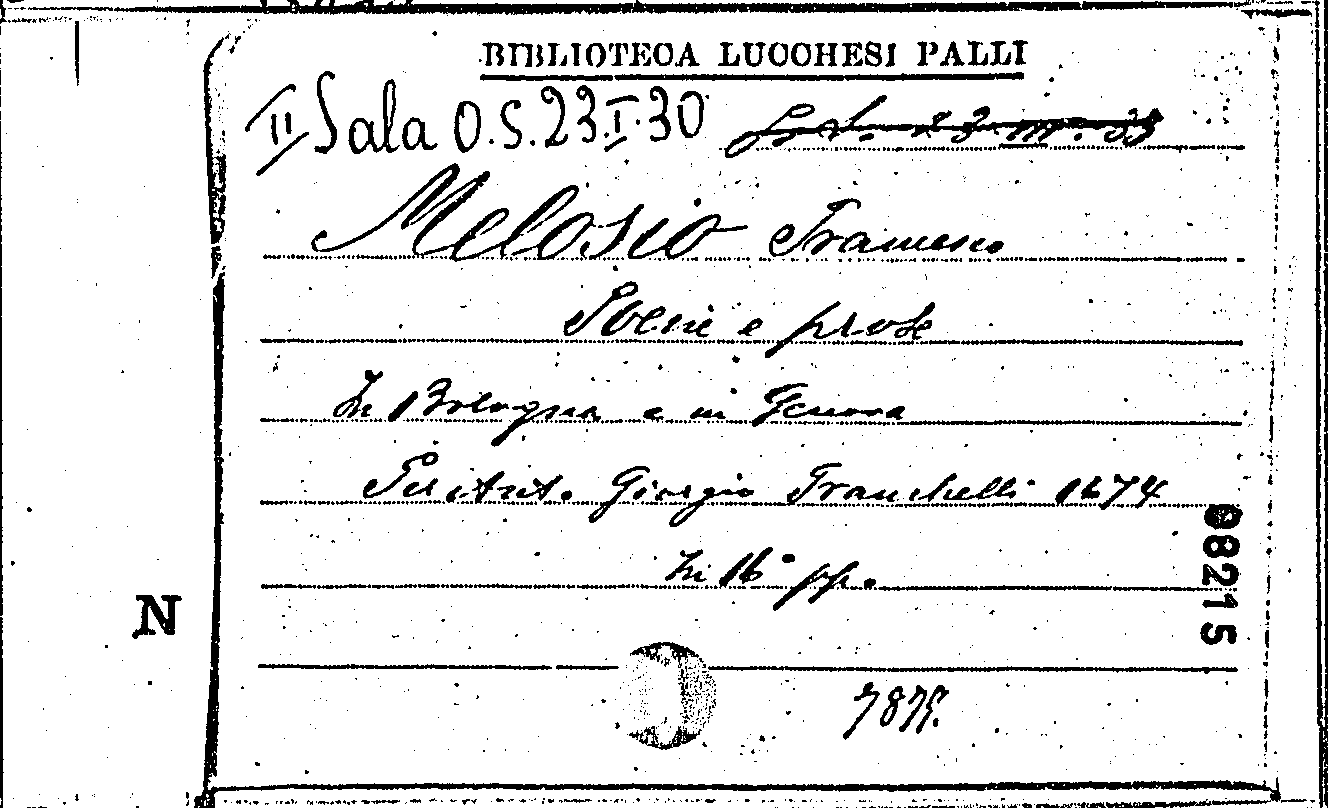 BIBLIOTECA LUCCHESI PALLI
II Sala O.S.23.I.30
Melosio Francesco
Poesie e prose
In Bologna e in Genova
Per Ant. Giorgio Franchelli 1674
In 16° pp.
98215
N